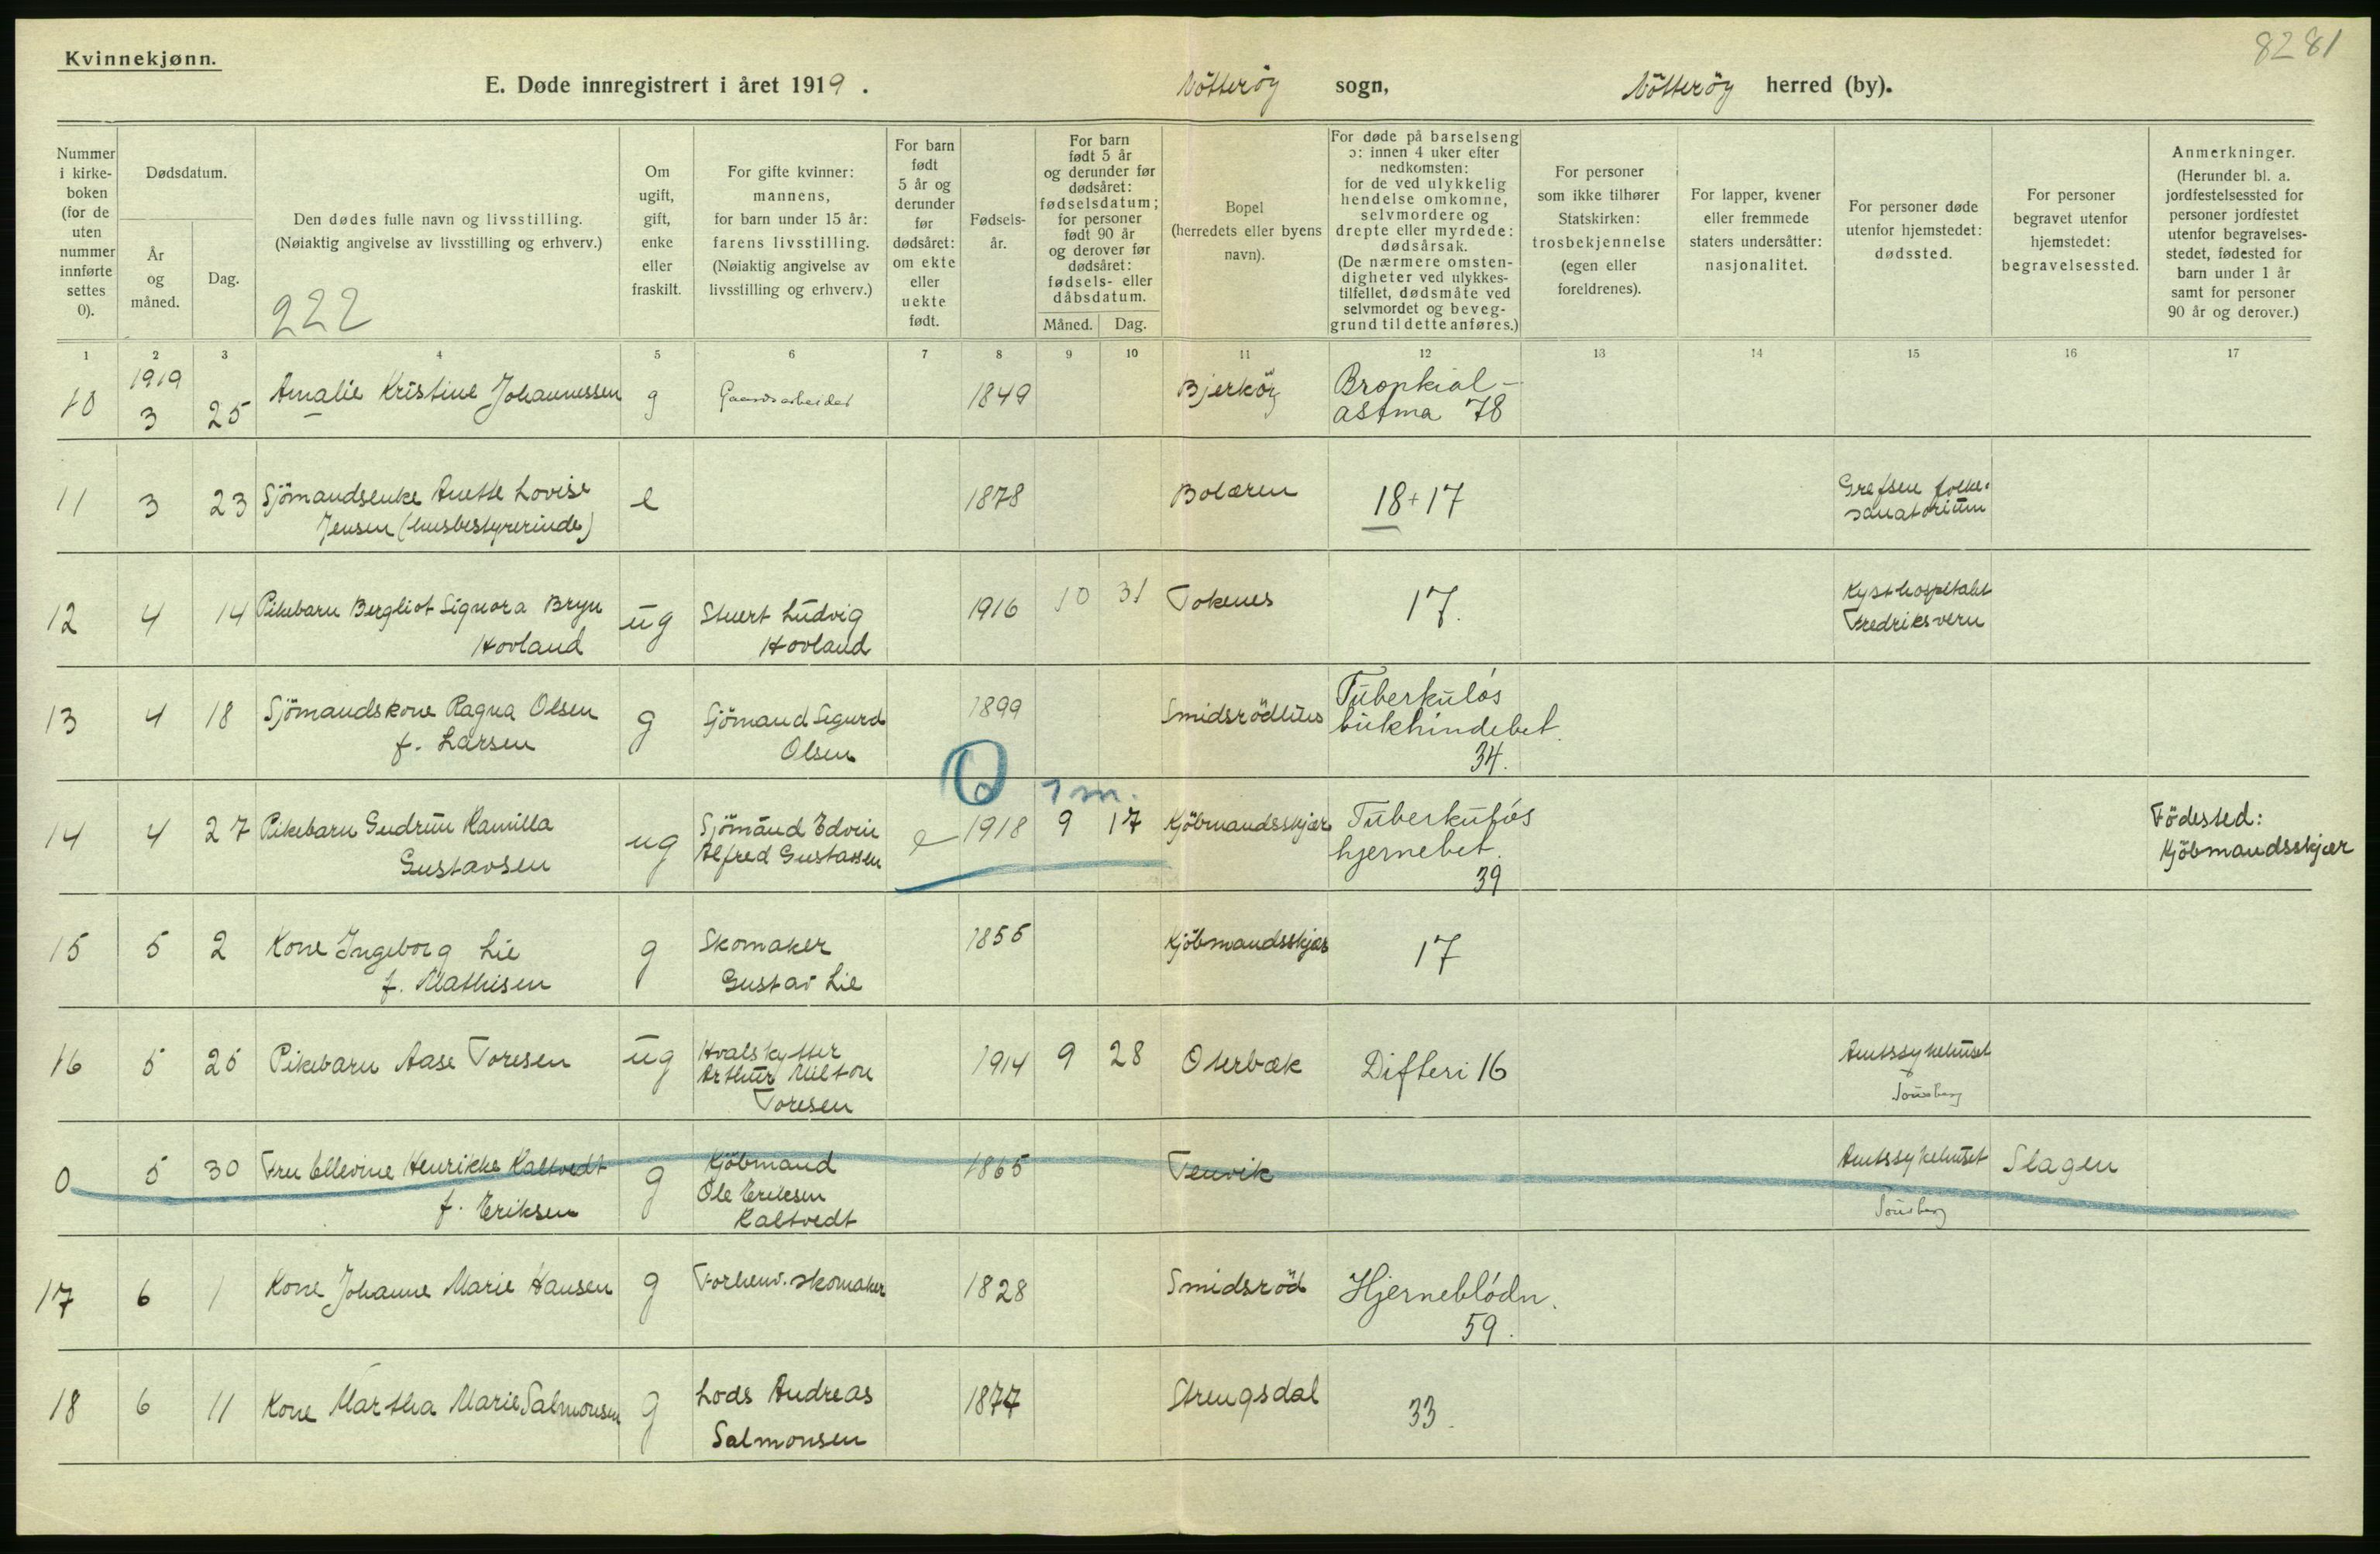 Kvinnekjønn.
8281
E. Døde innregistrert i året 1919. Nötteröy sogn, Nötteröy herred (by).
Nummer i kirke-boken (for de uten nummer innførte settes 0).
Dødsdatum.
År og måned.
Dag.
Den dødes fulle navn og livsstilling.
(Nøiaktig angivelse av livsstilling og erhverv.)
222
Om ugift, gift, enke eller fraskilt.
For gifte kvinner: mannens, for barn under 15 år: farens livsstilling.
(Nøiaktig angivelse av livsstilling og erhverv.)
For barn født 5 år og derunder før dødsåret: om ekte eller uekte født.
Fødsels-år.
For barn født 5 år og derunder før dødsåret: fødselsdatum; for personer født 90 år og derover før dødsåret: fødsels- eller dåbsdatum.
Måned. Dag.
Bopel (herredets eller byens navn).
For døde på barselseng ɔ: innen 4 uker efter nedkomsten: for de ved ulykkelig hendelse omkomne, selvmordere og drepte eller myrdede: dødsårsak.
(De nærmere omsten-digheter ved ulykkes-tilfellet, dødsmåte ved selvmordet og beveg-grund til dette anføres.)
For personer som ikke tilhører Statskirken: trosbekjennelse (egen eller foreldrenes).
For lapper, kvener eller fremmede staters undersåtter: nasjonalitet.
For personer døde utenfor hjemstedet: dødssted.
For personer begravet utenfor hjemstedet: begravelsessted.
Anmerkninger.
(Herunder bl. a. jordfestelsessted for personer jordfestet utenfor begravelses-stedet, fødested for barn under 1 år samt for personer 90 år og derover.)
1 2 3 4 5 6 7 8 9 10 11 12 13 14 15 16 17
1919
10 3 25 Amalie Kristine Johannessen g Gaardsarbeider 1849 Bjerköy Bronkial-
astma 78
11 3 23 Sjömandsenke Anette Lovise e 1878 Bolæren 18+17 Grefsen folke-
Jensen (husbestyrerinde) sanatorium
12 4 14 Pikebarn Bergliot Signora Bryn ug Stuert Ludvig 1916 10 31 Tokenes 17. Kysthospitalet
Hovland Hovland Fredriksvern
13 4 18 Sjömandskone Ragna Olsen g Sjömand Sigurd 1899 Smidsrödlies Tuberkulós
f. Larsen Olsen bukhindebet.
34.
7 m.
14 4 27 Pikebarn Gudrun Kamilla ug Sjömand Edvin e 1918 9 17 Kjöbmandsskjær Tuberkulós Födested:
Gustavsen Alfred Gustavsen hjernebet. Kjöbmandsskjær
39
15 5 2 Kone Ingeborg Lie g Skomaker 1855 Kjöbmandsskjær 17
f. Mathisen Gustav Lie
16 5 25 Pikebarn Aase Toresen ug Hvalskytter 1914 9 28 Oterbæk Difteri 16 Amtssykehuset
Arthur Milton Tönsberg
Toresen
0 5 30 Fru Ellevine Henrikke Kaltvedt g Kjöbmand 1865 Tenvik Amtssykehuset Slagen
f. Eriksen Ole Eriksen Tönsberg
Kaltvedt
17 6 1 Kone Johanne Marie Hansen g Forhenv. skomaker 1828 Smidsröd Hjerneblódn.
59.
18 6 11 Kone Martha Marie Salmonsen g Lods Andreas 1877 Strengsdal 33.
Salmonsen